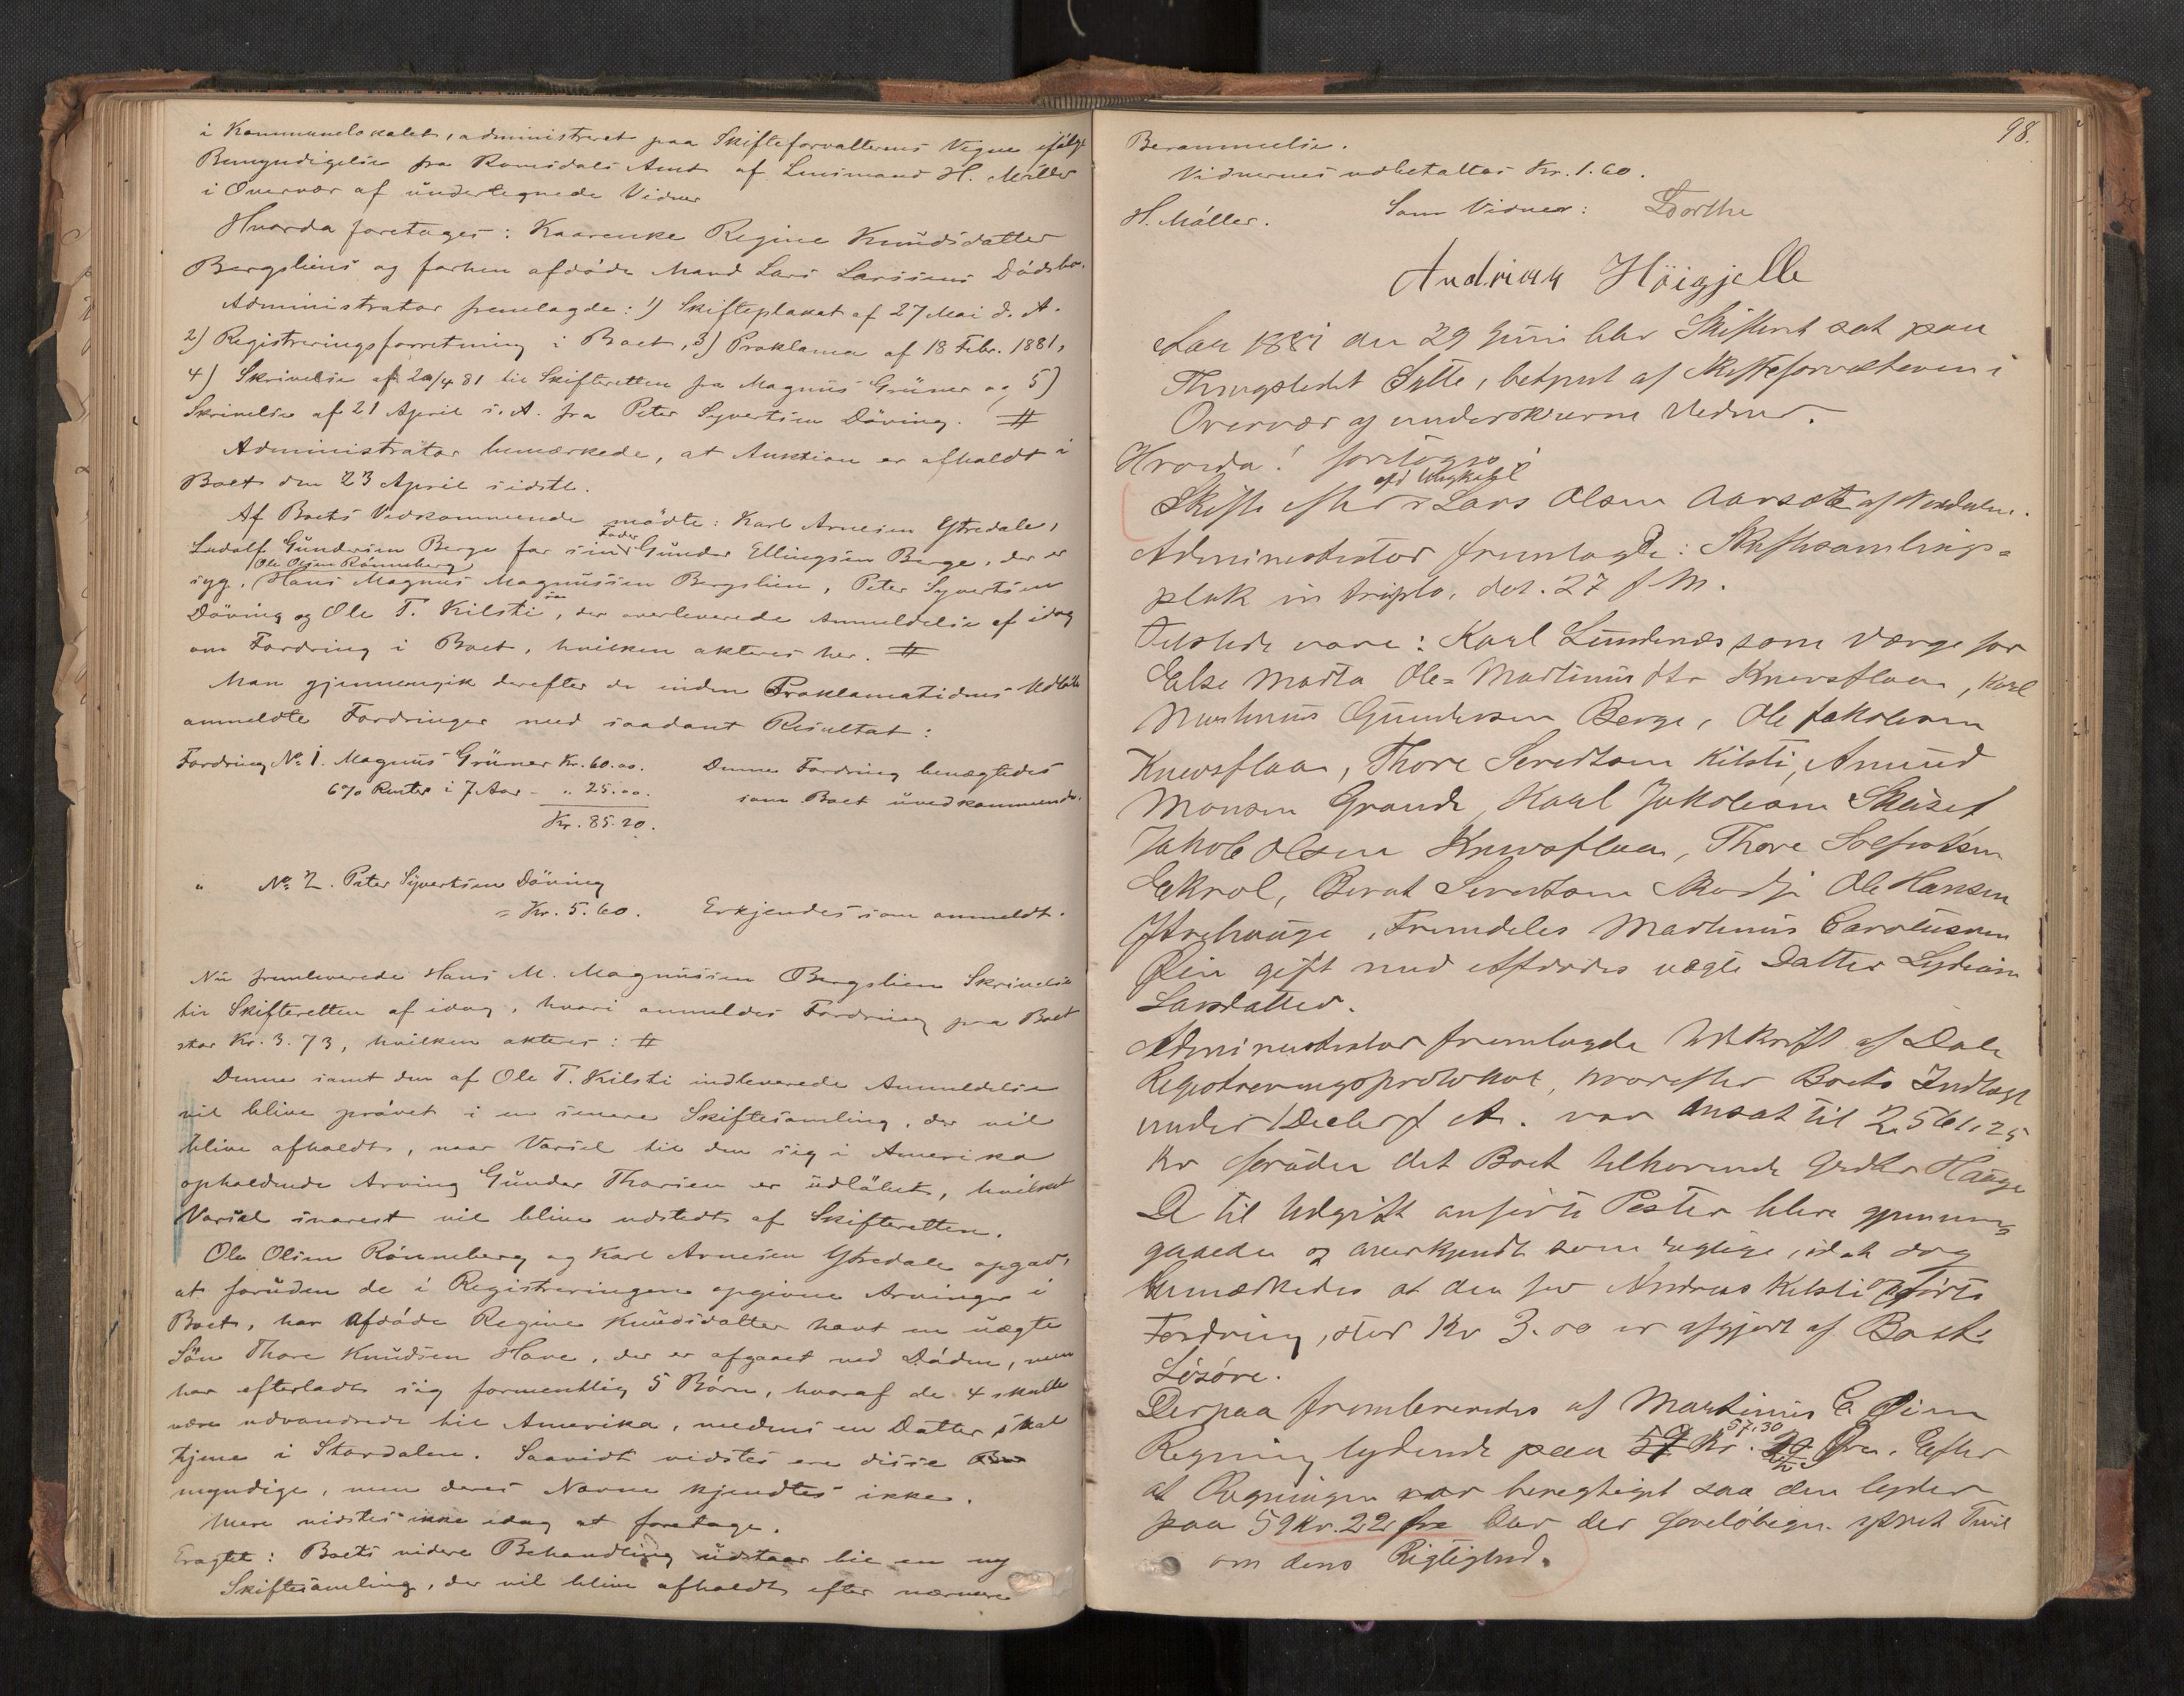 i Kommunelokalet, administreret paa Skifteforvalterens Vegne ifølge
Bemyndigelse fra Romsdals Amt af Lensmand H. Møller
i Overvær af undertegnede Vidner
Hvorda foretoges: Kaarenke Regine Knudsdatter
Bergsliens og forhen afdøde Mand Lars Larssens Dødsbo.
Administrator fremlagde: 1) Skifteplakat af 27 Mai d. A.
2) Registreringsforretning i Boet, 3) Proklama af 18 Febr. 1881,
4) Skrivelse af 20/4 81 til Skifteretten fra Magnus Grüner og 5)
Skrivelse af 21 April s. A. fra Peter Syvertsen Døving. #
Administrator bemærkede, at Auktion er afholdt i
Boet den 23 April sidstl.
Af Boets Vedkommende mødte: Karl Arnesen Ytredale,
Ludolf Gundersen Berge for sin Fader Gunder Ellingsen Berge, der er
Ole Olsen Rønneberg
syg, Hans Magnus Magnussen Bergslien, Peter Syvertsen
Døving og Ole T. Kilsti, der overleverede Anmeldelse af idag
om Fordring i Boet, hvilken akteres her. #
Man gjennemgik derefter de inden Proklamatidens Udløb
anmeldte Fordringer med saadant Resultat:
Fordring No 1. Magnus Grüner Kr. 60.00. Denne Fordring benægtedes
6% Renter i 7 Aar - " 25.00. som Boet uvedkommende.
Kr. 85.20.
" No 2. Peter Syvertsen Døving
= Kr. 5.60. Erkjendes som anmeldt.
Nu fremleverede Hans M. Magnussen Bergslien Skrivelse
til Skifteretten af idag, hvori anmeldes Fordring paa Boet
stor Kr. 3.73, hvilken akteres: #
Denne samt den af Ole T. Kilsti indleverede Anmeldelse
vil blive prøvet i en senere Skiftesamling, der vil
blive afholdt, naar Varsel til den sig i Amerika
opholdende Arving Gunder Thorsen er udløbet, hvilket
Varsel snarest vil blive udstedt af Skifteretten.
Ole Olsen Rønneberg og Karl Arnesen Ytredale opgav,
at foruden de i Registreringen opgivne Arvinger i
Boet, har Afdøde Regine Knudsdatter havt en uægte
Søn Thore Knudsen Hove, der er afgaaet ved Døden, men
har efterladt sig formentlig 5 Børn, hvoraf de 4 skulle
være udvandrede til Amerika, medens en Datter skal
tjene i Stordalen. Saavidt vidstes ere disse
myndige, men deres Navne kjendtes ikke.
Mere vidstes ikke idag at foretage.
Eragtet: Boets videre Behandling udstaar til en ny
Skiftesamling, der vil blive afholdt efter nærmere
98.
Berammelse.
Vidnernes udbetaltes Kr. 1.60.
H. Møller. Som Vidner: Dorthe
Andrian Høigjelle
Aar 1881 den 29 Juni blev Skifteret sat paa
Thingstedet Sylte, betjent af Skifteforvalteren i
Overvær af underskrevne Vidner.
Hvorda! foretoges:
Skifte efter Lars Olsen Aarsæte af Norddalen.
Administrator fremlagde: Skiftesamlings-
plak in triplo, dat. 27 f. M.
Tilstede vare: Karl Lundenæs som Værge for
Else Marta Ole-Martinusdtr Knevsflaa, Karl
Martinus Gundersen Berge, Ole Jakobsen
Knevsflaa, Thore Sivertsen Kilsti, Amund
Monsen Grande, Karl Jakobsen
Jakob Olsen Knevsflaa, Thore
Ekrol, Berat Sivertsen Ole Hansen
Ytrehauge, Fremdeles Martinus Carolusen
Øien gift med Afdødes uægte Datter
Larsdatter.
Administrator fremlagde Udskrift af Dale
Registreringsprotokol, hvorefter Boets Indtægt
under var ansat til 2,561,25
Kr foruden det Boet tilhørende Hauge
De til Udgift anførte Poster blive gjennem-
gaaede og anerkjendt som rigtige, idet dog
bemærkedes at den for Andreas Kilsti opførte
Fordring, stor Kr 3.00 er afgjort af Boets
Løsøre.
Derpaa fremleveredes af Martinus C. Øien
57,30
Regning lydende paa 59 Kr. Øre. Efter
at Regningen var beregtiget saa den lyder
paa 59 Kr. 22 Øre blev der foreløbigen Tvil
om dens Rigtighed.